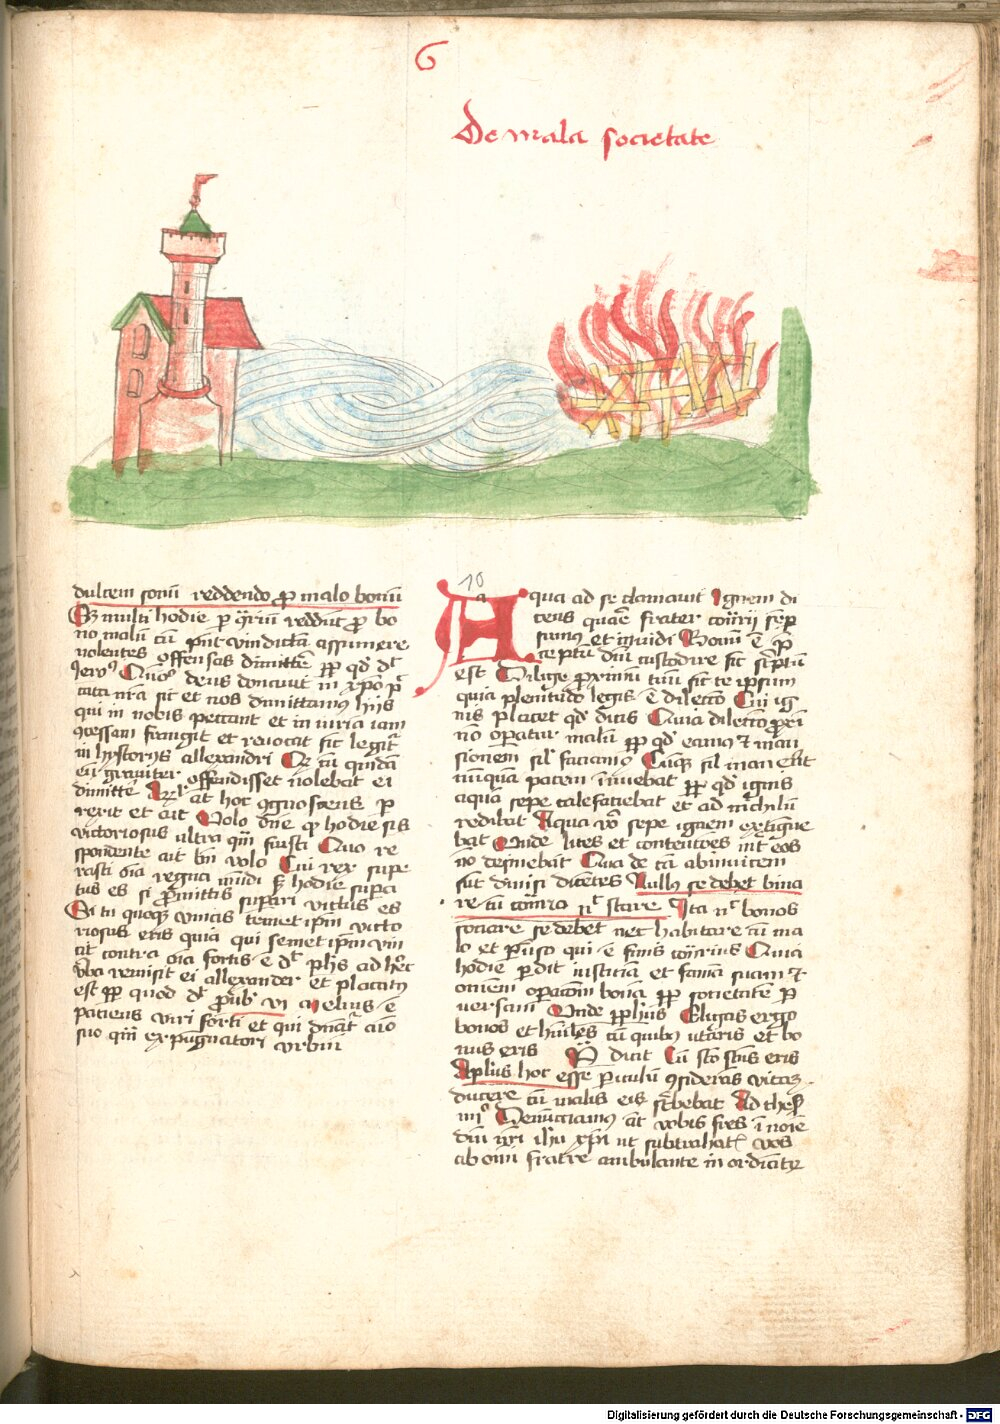 6
De mala societate
dulcem sonū reddendo ꝓ malo bonū
Sz multi hodie ꝑ ꝯͣriū reddūt ꝓ bo
no malū cū pn̄t vindictā assumere
nolentes offensas dimittē ꝓꝑ qd̓ dt̄
deus donauit in xp̄o
nr̄a sit et nos dimittamꝰ hijs
qui in nobis peccant et in iuria iam
ꝯcessam frangit et reuocat sic legit̄
in hystorijs allexandri Qr̄ cū quidā
eū grauiter offendisset nolebat ei
dimittē at hoc ꝯgnoscens ꝑ
rexit et ait Volo dn̄e qꝫ hodie sis
victoriosus ultra qm̄ fuisti Quo re
spondente ait bn̄ volo Cui rex supe
rasti oīa regna mūdi sꝫ hodie supa
tus es si ꝓmittis supari victus es
Si tu quoqꝫ vincis temet ip̄m victo
riosus eris quia qui semet ip̄m vin
cit contra oīa fortis ē dt̄ ph̄s ad hec
vba remisit ei allexander et placatꝰ
est ꝓꝑ quod dt̄ ꝓuerb̓ vi Melius ē
paciens viri forti et qui dn̄at̄ aīo
suo qm̄ expugnatori vrbiū
10
Aqua ad se clamauit Ignem di
cens quare frater ꝯiūcti semꝑ
sumꝰ et inuidi Bonū ē
ceptū dn̄i custodire sic sc̄ptū
est Dilige ꝓximū tuū sic te ipsum
quia plenitudo legis ē dilecto Cui ig
nis placet qd̓ dicis Quia dilecto ꝓxi
mo operatur malū ꝓꝑ qd̓ eamꝰ ⁊ man
sionem sil̓ faciamꝰ Cūqꝫ sil̓ manerēt
nūquā pacem īueniebāt ꝓꝑ qd̓ ignis
aquā sepe calefaciebat et ad nichilū
redibat Aqua vō sepe ignem extingue
bat Vnde lites et contencōes int̄ eos
nō definebāt Qua de cā abinuicem
sūt diuisi dicētes Nullꝰ se debet bina
re cū cōtͣrio nͨ stare Ita nͨ bonos
sociare se debet nec habitare cū ma
lo et ꝑuerso qui ē suus ꝯͣriꝰ Quia
hodie ꝑdit iusticiā et famā suam ⁊
omnem operacōm bonā ꝓꝑ societatē ꝑ
uersam Vnde ꝓph̓s Eligas ergo
bonos et hūiles cū quibꝰ vtaris et bo
nus eris dicit Cū scō scūs eris
Aplūs hoc esse ꝑiculū ꝯsiderās vitā
ducere cū malis eis sc̄bebat Ad thes̓
Denūcciamus āt vobis fr̄es ī noīe
dn̄i nr̄i ih̓u xp̄i ut subtrahat̄ vos
ab om̄i fratre ambulante in ordīate
Digitalisierung gefördert durch die Deutsche Forschungsgemeinschaft - DFG